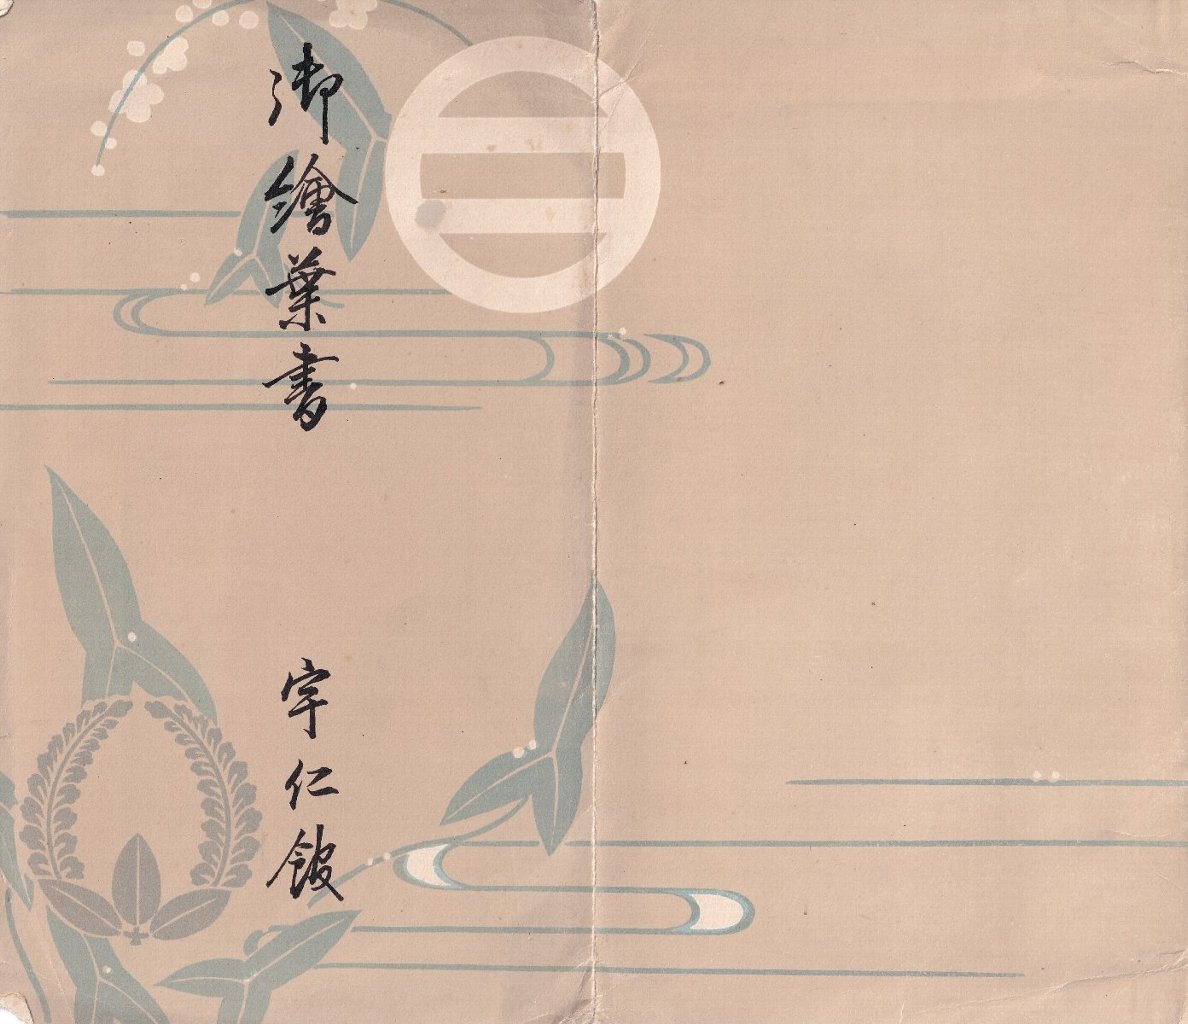 御繪葉書
宇仁館